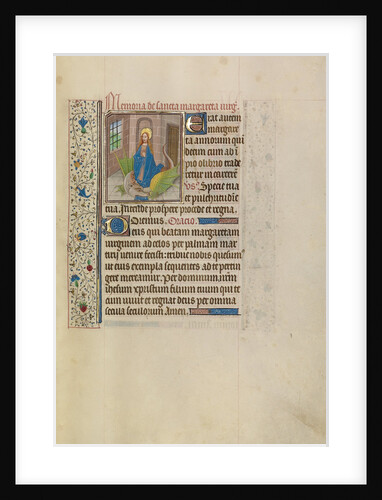 Memoria de sancta margareta virg̅.
Erat autem
margare
ta annorum qui
decim cum ab i
pio olibrio trade
retur in carcerem
vs. Specie tua
et pulchritudi͞e
tua. Intende prospere procede et regna.
Oremus. Oracio.
Deus qui beatam margaretam
virginem ad celos per palmam mar
tirij venire fecisti: tribue nobis quesum̅
ut eius exempla sequentes ad te pertin
gere mereamur. Per dominum n͞rm
ihesum xp̅ristum filium tuum qui te
cum vivit et regnat deus per omnia
secula seculorum Amen.